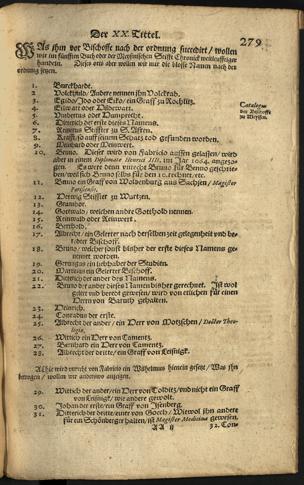 Der XX. Tittel.
279
WAs ihm vor Bischoffe nach der ordnung succedirt / wollen
wir im fünfften Buch oder der Meißnischen Stifft Chronick weitleufftiger
handeln. Dieses orts aber wollen wir nur die blosse Namen nach der
ordnung setzen.
Catalogus
der Bischoffe
zu Meyssen.
1. Burckhardt.
2. Volckhold / Andere nennen ihn Volckrad.
3. Egidius / oder Eiko / ein Graff zu Rochlitz.
4. Eilwart oder Hildewart.
5. Humbertus oder
6. Dieterich der erste dieses Namens.
7. Reinerus Stiffter zu S. Affren.
8. auff seinem Schatz tod gefunden worden.
9. Meinhard oder Meinwert.
10. Benno. Dieser wird von Fabricio aussen gelassen / wird
aber in einem Diplomate Henrici III, im Jar 1064. angezo-
gen. Es were denn unrecht Bruno für Benno geschrie-
ben / weil sich Benno selbs für den 10. rechnet. etc.
11. Bruno ein Graff von Woldenburg aus Sachsen / Magister
Parisiensis.
12. Herwig Stiffter zu Wurtzen.
13. Grambor.
14. Gottwald / welchen andere Gotthold nennen.
15. Reinwald oder Reinwert.
16. Berthold.
17. Albrecht / ein Gelerter nach derselben zeit gelegenheit und be-
redter Bischoff.
18. Bruno / welcher sonst bißher der erste dieses Namens ge-
nennet worden.
19. Gerungus ein liebhaber der Studien.
20. Martinus ein Gelerter Bischoff.
21. Dieterich der ander des Namens.
22. Bruno der ander dieses Namens bißher gerechnet. Ist wol
gelert und beredt gewesen / wird von etlichen für einen
Herrn von Baruth gehalten.
23. Heinrich.
24. Conradus der erste.
25. Albrecht der ander / ein Herr von Motzschen / Doctor Theo-
logiæ.
26. Wittich ein Herr von Camentz.
27. Bernhard ein Herr von Camentz.
28. Albrecht der dritte / ein Graff von Leißnigk.
Alhie wird unrecht von Fabricio ein Wilhelmus hienein gesetzt / Was ihn
betrogen / wollen wir anderswo anzeigen.
29. Wittich der ander / ein Herr von Colditz / und nicht ein Graff
von Leißnigk / wie andere gewolt.
30. Johan der erste / ein Graff von Isenberg.
31. Dieterich der dritte / aus von Goch / Wiewol ihn andere
für ein Schönberger halten / ist Magister Medicinæ gewesen.
AA ij
32. Con-